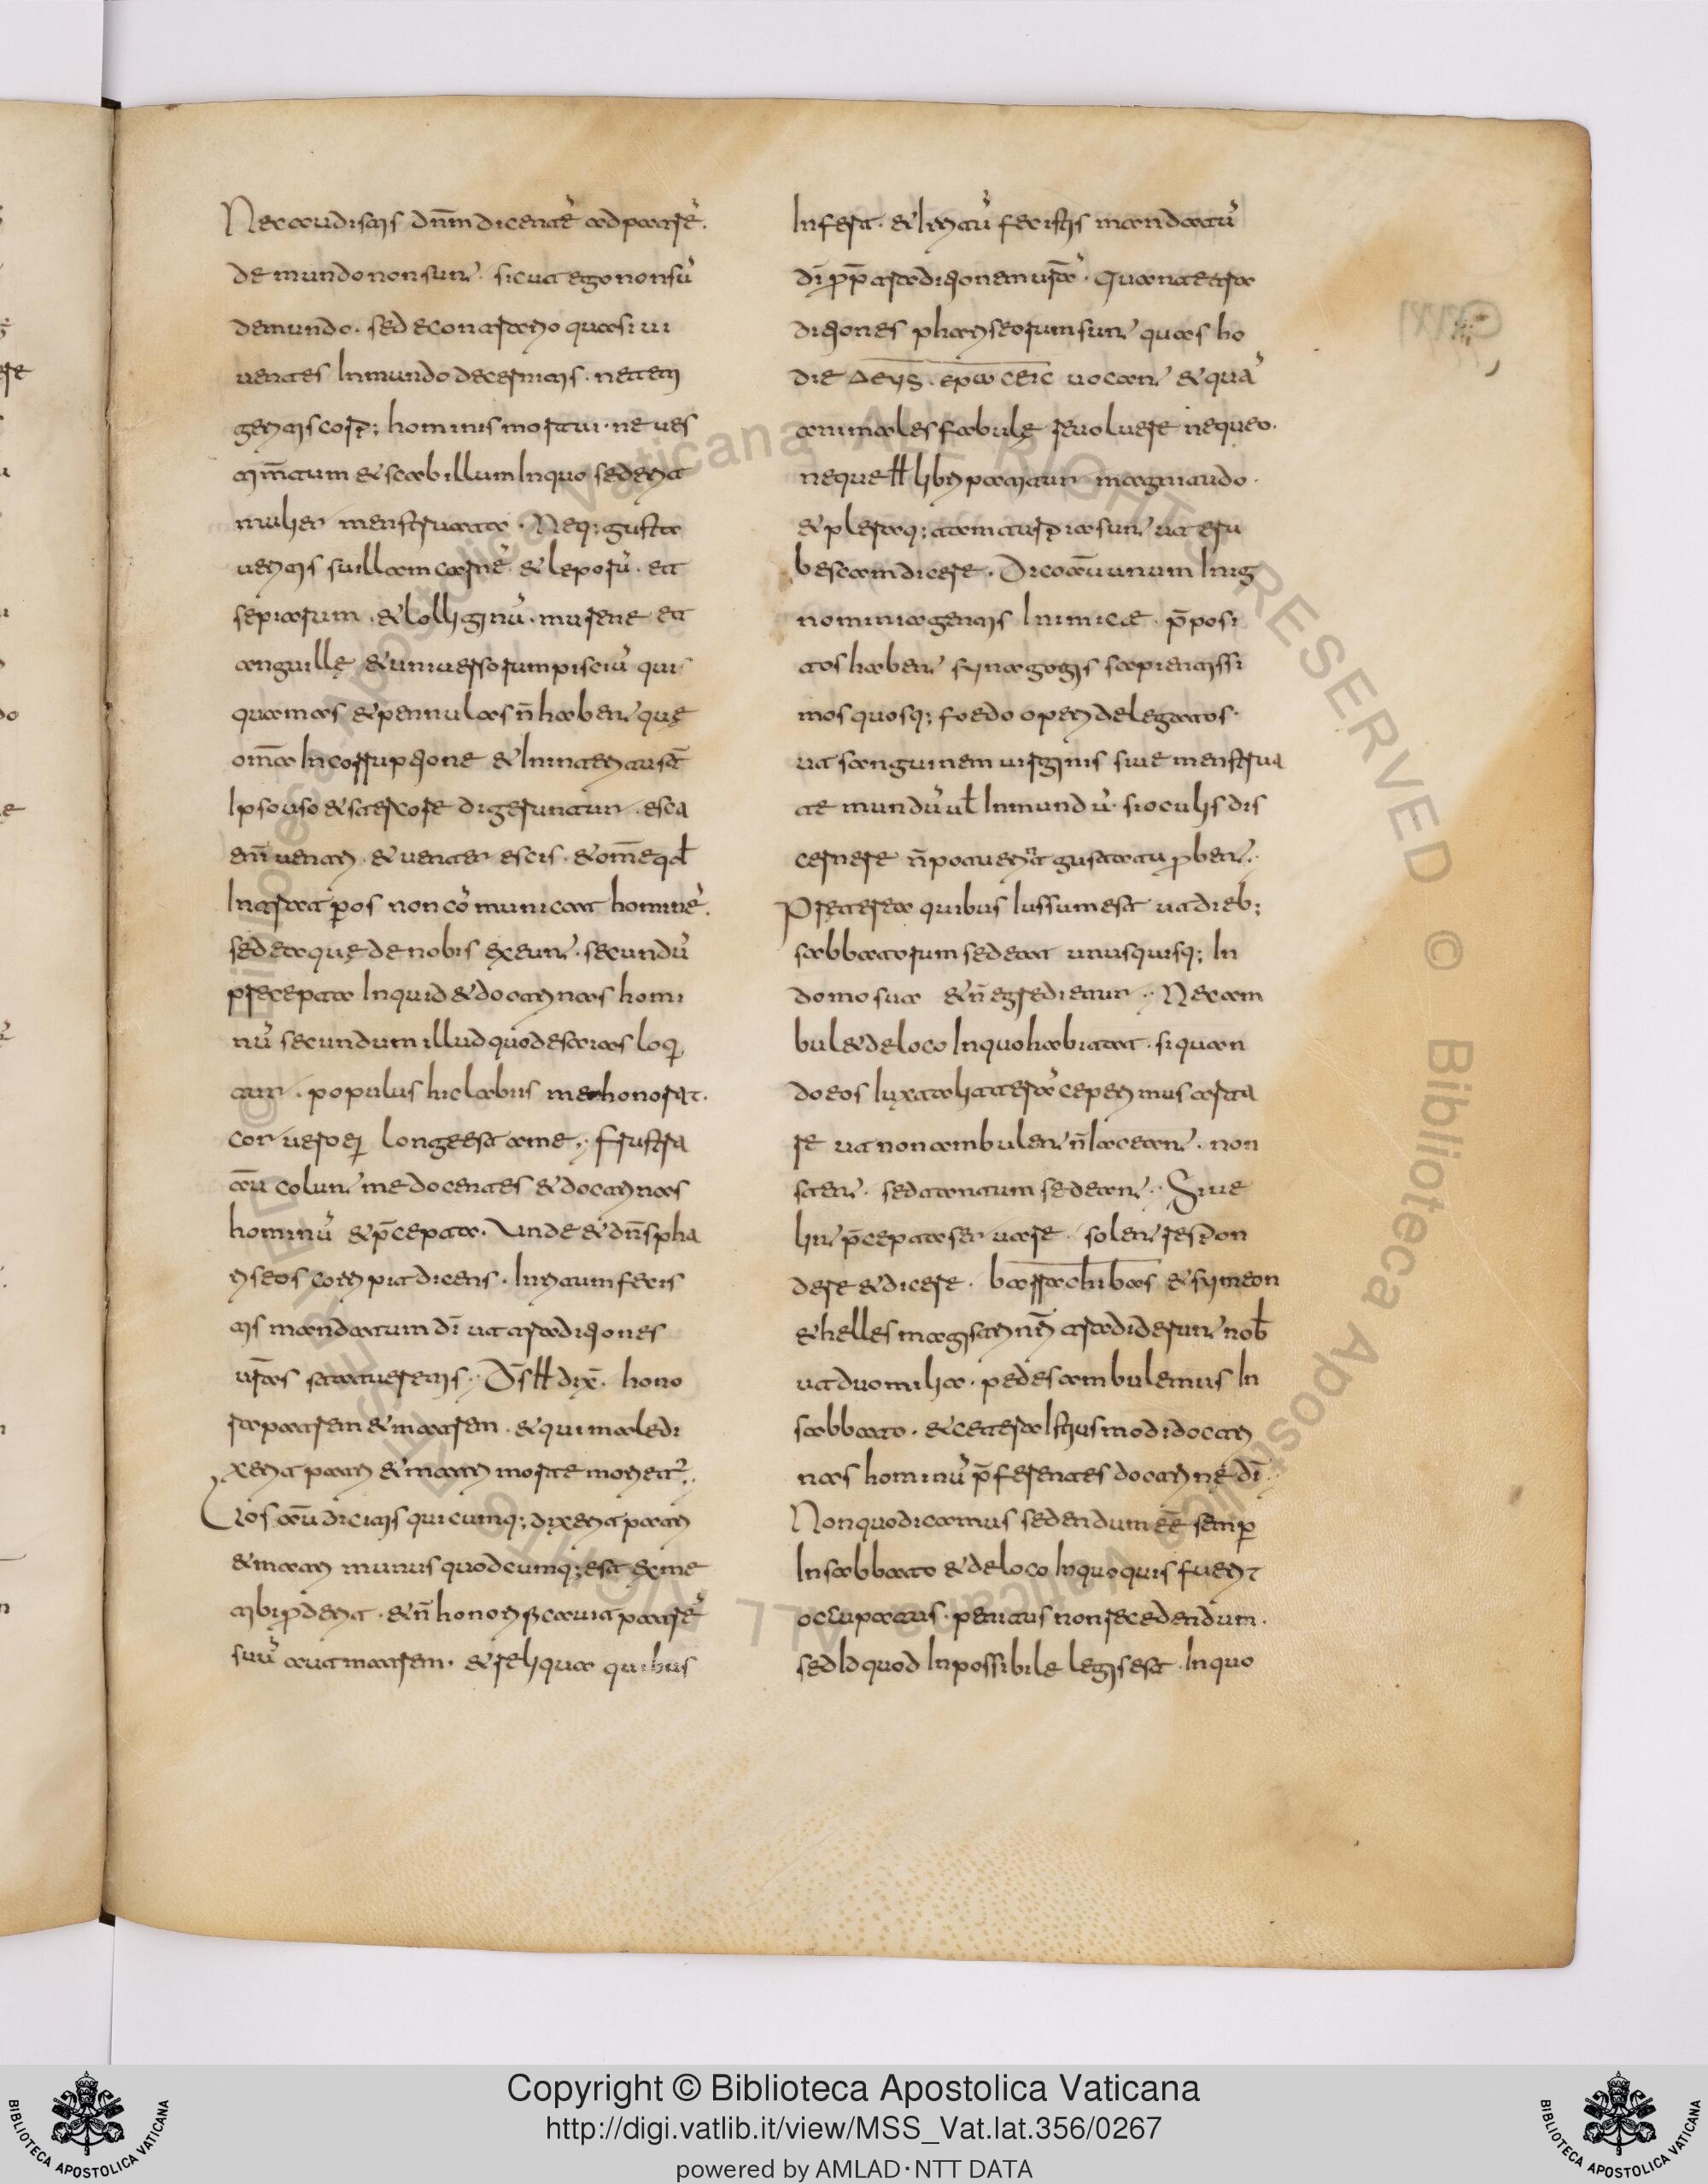 Nec auditis dñm dicentē ad patrē.
de mundo non sunt sicut ego non sū
de mundo. sed econtrario quasi vi
ventes in mundo decernitis. ne teti
geritis corp; hominis mortui. ne ves
tim̄tum & scabillum in quo sederit
mulier menstruata. Neq; gusta
veritis suillam carnē. & leporū. et
sepiarum. & lolliginū. murene et
anguille & universorum pisciū qui
quamas & pennulas n̄ habent que
om̄a in corruptione & in interitu st̄
ipso uso & stercore digeruntur. esca
enī ventri. & venter escis. & om̄e qd̄
intrat p os non cōmunicat hominē.
sed ea que de nobis exeunt. secundū
precepta inquid & doctrinas homi
nū secundum illud quod esaias loqi
tur. populus hic labiis me honorat.
cor vero eoꝝ longe est a me. frustra
aū colunt me docentes & doctrinas
hominū & p̄cepta. Unde & dn̄s pha
riseos corripit dicens. Irritum fecis
tis mandatum dī ut traditiones
vr̄as statueretis. D̄s .n. dix̄. hono
ra patrem & matrem. & qui maledi
xerit patri & matri morte moriet̉.
Vos aū dicitis quicumq; dixerit patri
& matri munus quodcumq; est ex me
tibi p̱derit. & n̄ honorificavit patrē
suū aut matrem. & reliqua quibus
infert. & irritū fecistis mandatū
dī pp̄ traditionem vr̄ā. Quante tra
ditiones phariseorum sunt quas ho
die ΔΕΥS. ΕΡω CΕΙC vocant & quā
aniles fabule revolvere nequeo.
neque .n. libri patitur magnitudo.
& pleraq; tam turpia sunt ut eru
bescam dicere. Dico aū unum in ig
nominia gentis inimice. p̄posi
tos habent synagogis sapientissi
mos quosq; foedo operi delegatos.
ut sanguinem virginis sive menstrua
te mundū vl̄ inmundū. si oculis dis
cernere n̄ potuerint gustatu p̱bent.
Preterea quibus iussum est ut dieb;
sabbatorum sedeat unusquisq; in
domo sua & n̄ egredietur. Nec am
bul& de loco in quo habitat. si quan
do eos iuxta litterā ceperimus arta
re ut non ambulent n̄ iaceant. non
stent. sed tantum sedeant. Sive
lint p̄cepta servare. solent respon
dere & dicere. barrachibas & symeon
& helles magistri nr̄i tradiderunt nob̄
ut duo milia. pedes ambulemus in
sabbato. & cetera istiusmodi doctri
nas hominū p̄ferentes doctrine dī.
Non quo dicamus sedendum ēē semp
in sabbato & de loco in quo quis fuerit
occupatus. penitus non recedendum.
sed id quod inpossibile legis est. in quo
Copyright © Biblioteca Apostolica Vaticana
http://digi.vatlib.it/view/MSS_Vat.lat.356/0267
powered by AMLAD·NTT DATA
BIBLIOTECA APOSTOLICA VATICANA
BIBLIOTECA APOSTOLICA VATICANA